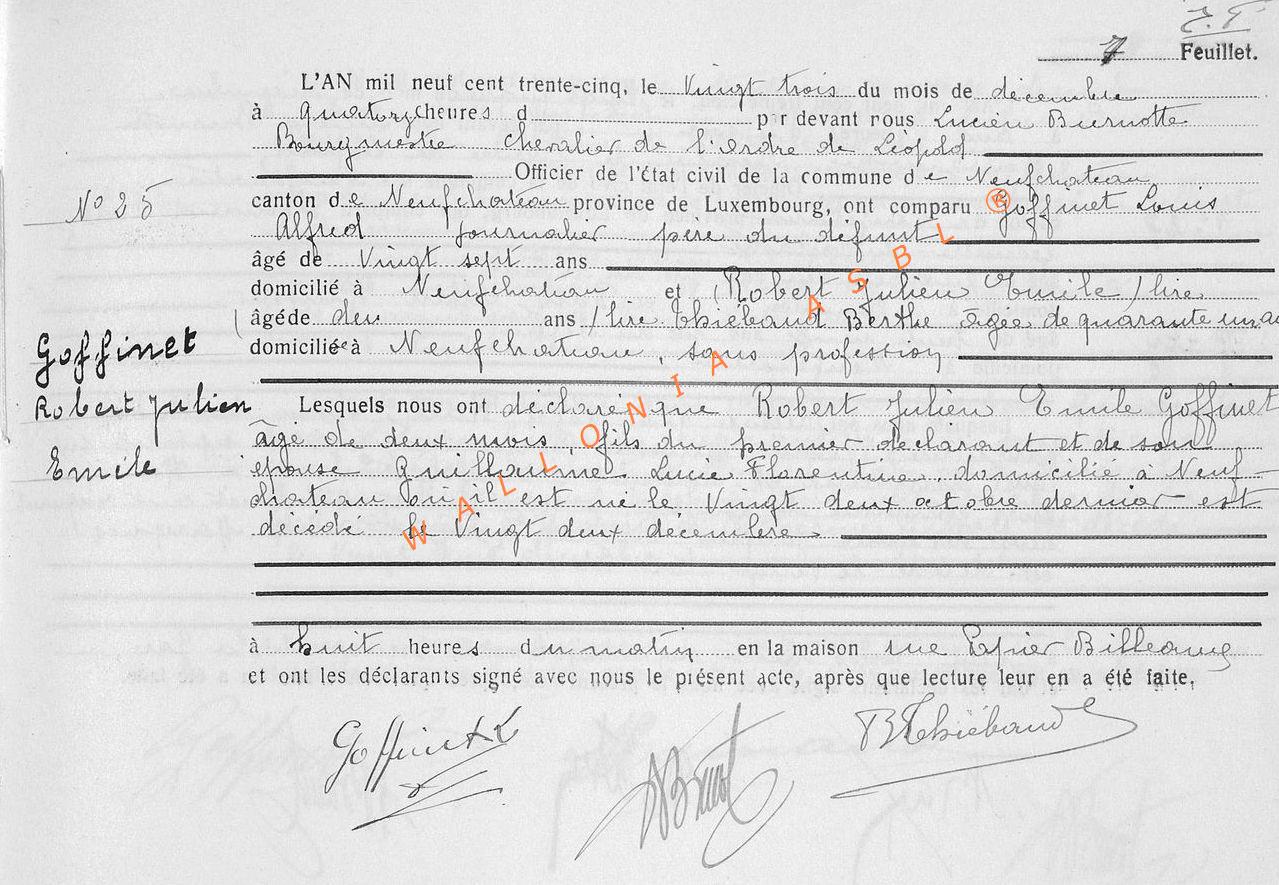 7 Feuillet.
L'AN mil neuf cent trente-cinq, le Vingt trois du mois de décembre
à quatorze heures d par devant nous Lucien Burnotte
Bourgmestre Chevalier de l'ordre de Léopold
Officier de l'état civil de la commune de Neufchateau
N° 25
canton de Neufchateau province de Luxembourg, ont comparu Goffinet Louis
Alfred journalier père du défunt
âgé de Vingt sept ans
domicilié à Neufchateau et (Robert Julien Emile / lire
(âgé de deu ans / lire Thiébaud Berthe âgée de quarante un an
domiciliée à Neufchateau, sans profession
Goffinet
Robert Julien
Emile
Lesquels nous ont déclaré que Robert Julien Emile Goffinet
âgé de deux mois, fils du premier déclarant et de son
épouse Guillaume Lucie Florentine, domicilié à Neuf-
chateau où il est né le Vingt deux octobre dernier est
décédé le Vingt deux décembre
à huit heures du matin en la maison rue Papier
et ont les déclarants signé avec nous le présent acte, après que lecture leur en a été faite,
Goffinet L
B Thiébaud
WALLONIA ASBL ®